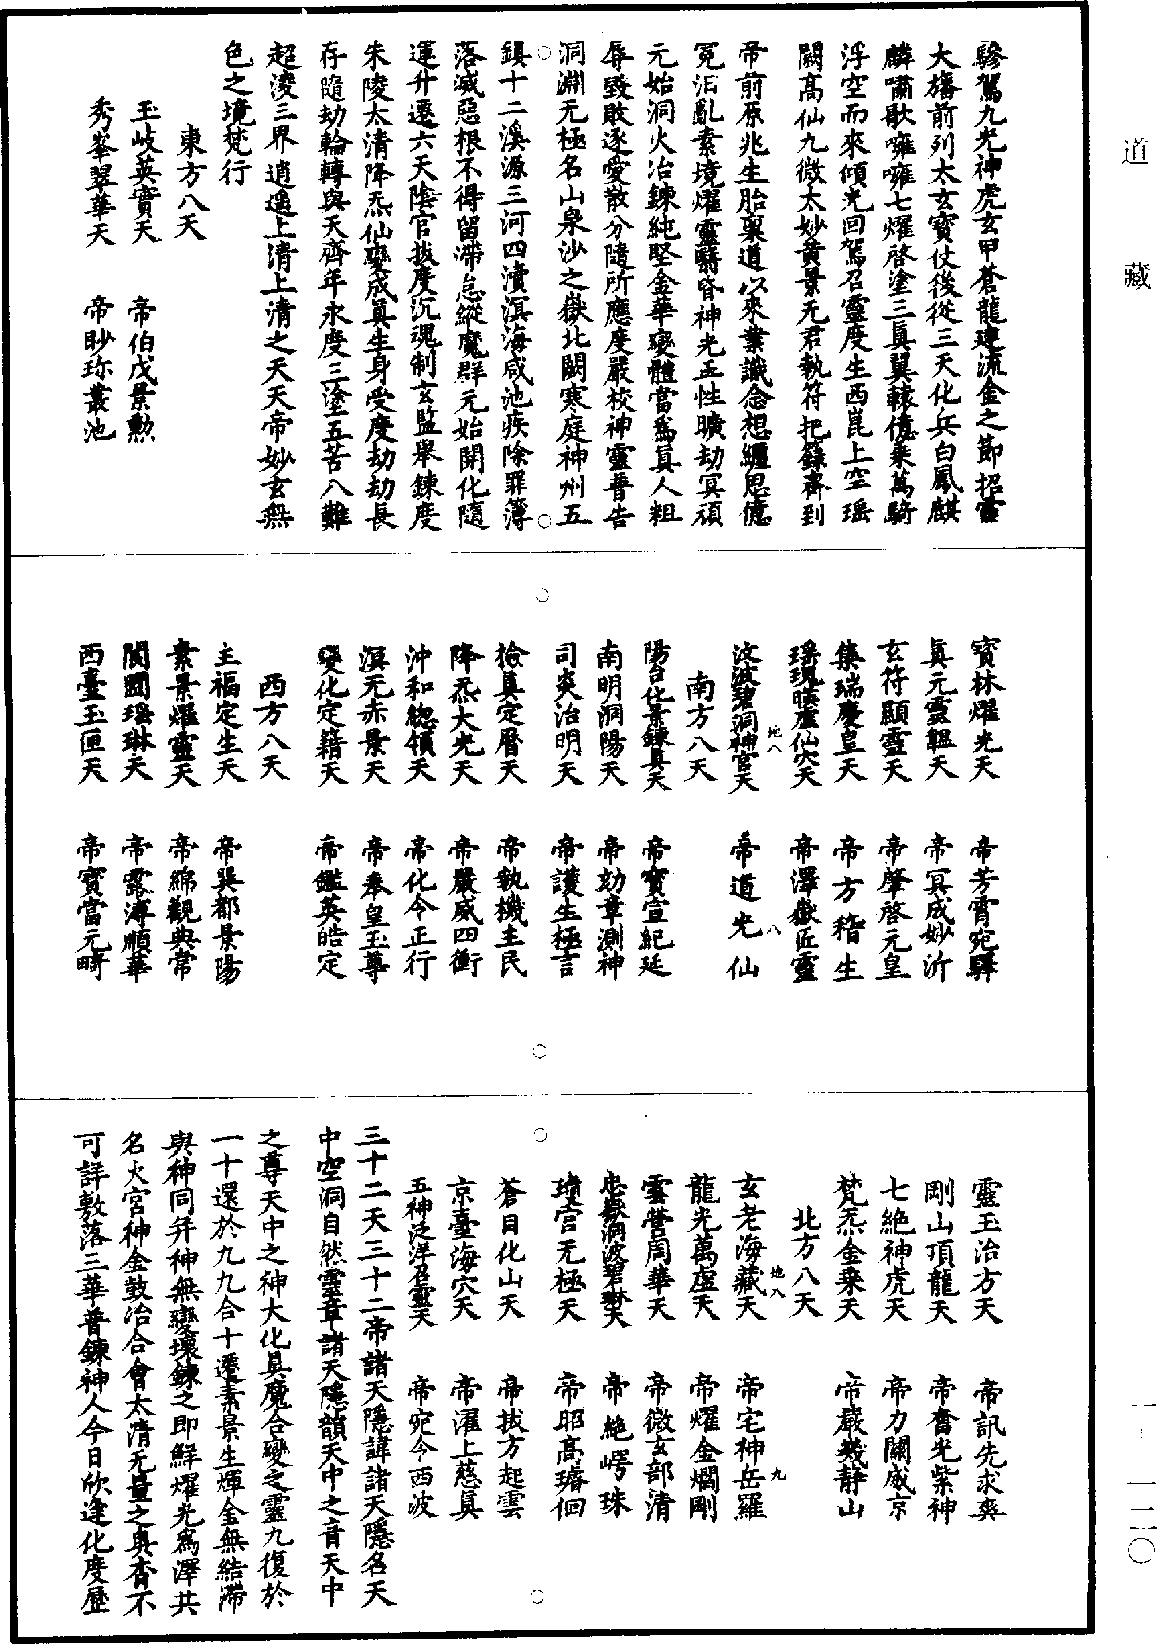 驂駕九光神虎玄甲蒼龍建流金之節招靈
大旛前列太玄寶仗後從三天化兵白鳳麒
麟嘯歌嗈嗈七燿啓塗三真翼轅億乘萬騎
浮空而來傾光回駕召靈度生西崑上空瑶
闕高仙九微太妙黄景元君執符把籙齊到
帝前原兆生胎稟道以來業識念想纏思億
冤汩亂素境燿靈翳昏神光五性曠劫冥頑
元始洞火冶鍊純堅金華變體當爲真人粗
辱毀敗逐愛散分隨所應度嚴校神靈普告
洞淵无極名山泉沙之嶽北闕寒庭神州五
鎮十二溪源三河四瀆溟海咸池疾除罪簿
落滅惡根不得留滯怠縱魔群元始開化隨
運升遷六天陰官拔度沉魂制玄監舉鍊度
朱陵太清降炁仙變成真生身受度劫劫長
存隨劫輪轉與天齊年永度三塗五苦八難
超淩三界逍遥上清上清之天天帝妙玄無
色之境梵行
東方八天
玉岐英實天　帝伯戊景勲
秀峯翠華天　帝眇珎叢池
寶林燿光天　帝芳霄宛驛
真元雲韞天　帝冥成妙沂
玄符顯靈天　帝肇啓元皇
集瑞慶皇天　帝方稽生
瑶瑰暎盧仙穴天　帝澤嶽匠靈
汶波碧洞神宫天　帝道光仙
地八　八
南方八天
陽台化景鍊真天　帝寶宣紀延
南明洞陽天　帝効章測神
司炎治明天　帝護生極言
檢真定曆天　帝執機主民
降炁大光天　帝嚴威四衝
沖和緫領天　帝化令正行
溟元赤景天　帝奉皇玉尊
變化定籍天　帝鑑英皓定
西方八天
主福定生天　帝巽都景陽
素景燿靈天　帝綿觀典常
閬圃瑶琳天　帝露溥順華
西臺玉匣天　帝寶當元畸
靈玉治方天　帝訊先求奭
剛山頂龍天　帝奮光紫神
七絶神虎天　帝力關威京
梵炁金乘天　帝巖幾静山
北方八天
玄老海藏天　帝宅神岳羅
地八　九
龍光萬虚天　帝燿金爛剛
雲營周華天　帝微玄部清
忠嶽洞波碧琳天　帝絶崿珠
瓊宫无極天　帝昭高璿佪
蒼目化山天　帝拔方起雲
京臺海穴天　帝濯上慈真
五神泛洋召靈天　帝宛今西波
三十二天三十二帝諸天隱諱諸天隱名天
中空洞自然靈章諸天隱韻天中之音天中
之尊天中之神大化具魔合變之靈九復於
一十還於九九合十遷素景生輝金無結滯
與神同并神無變壞鍊之即鮮燿光爲澤共
名火宫神金鼓治合會太清无量之奥杳不
可詳敷落三華普鍊神人今日欣逢化度歷
道藏
一一一二〇